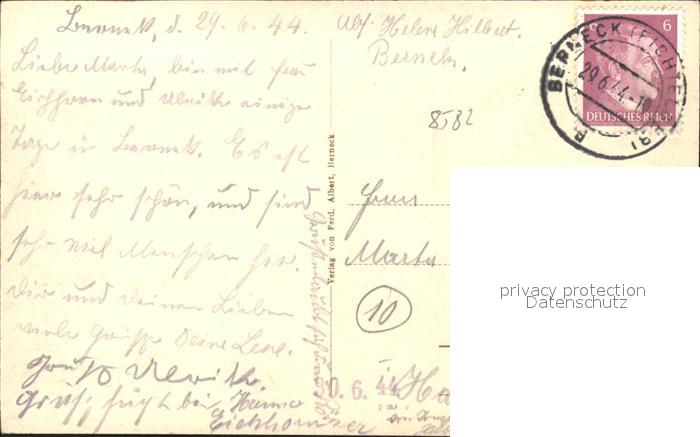 Berneck, d. 29.6.44.
Liebe Marta, bin mit Frau
Eichhorn und Ulrike einige
Tage in Berneck. Es ist
hier sehr schön, und sind
sehr viel Menschen hier.
Dir und deinen Lieben
viele Grüße Deine Lene.
Gruß
Gruß
Hanna
Abs. Helene Hilbert.
Berneck.
8582
6
DEUTSCHES REICH
BERNECK (FICHTELGEB)
29.6.44
Verlag von Ferd. Albert, Berneck
Frau
Marta
10
0. 6. 44
privacy protection
Datenschutz